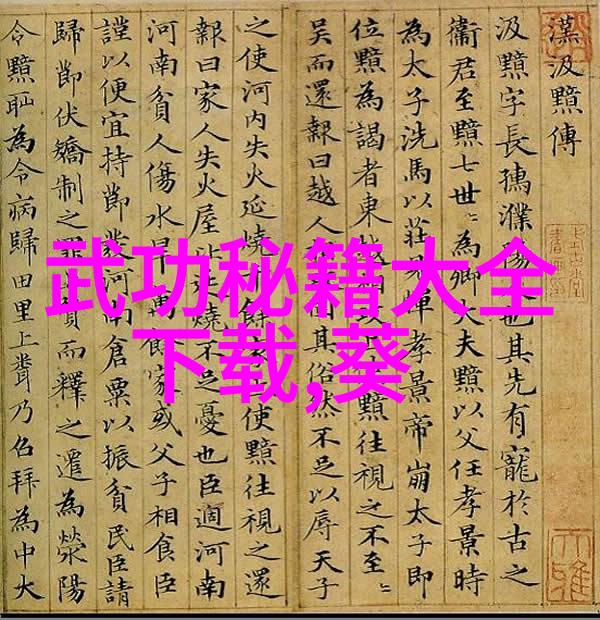 武功秘籍大全
下载,葵
漢汲黯傳
汲黯字長孺濮陽也其先有寵於古之
衛君至黯七世〻為卿大夫黯以父任孝景時
為太子洗馬以莊見憚孝景帝崩太子即
位黯為謁者東越相黯往視之不至〻
吳而還報曰越人固其俗然不足以辱天子
之使河内失火延燒餘家上使黯往視之還
報曰家人失火屋比延燒不足憂也臣適河南
河南貧人傷水旱萬餘家或父子相食臣
謹以便宜持節發河南倉粟以振貧民臣請
歸節伏矯制之罪賢而釋之遷為滎陽
令黯恥為令病歸田里上乃召拜為中大